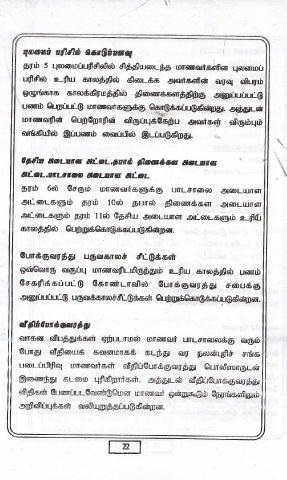 புலமைப் பரிசில் கொடுப்பனவு
தரம் 5 புலமைப்பரிசிலில் சித்தியடைந்த மாணவர்களின் புலமைப்
பரிசில் உரிய காலத்தில் கிடைக்க அவர்களின் வரவு விபரம்
ஒழுங்காக காலக்கிரமத்தில் திணைக்களத்திற்கு அனுப்பப்பட்டு
பணம் பெறப்பட்டு மாணவர்களுக்கு கொடுக்கப்படுகின்றது. அத்துடன்
மாணவரின் பெற்றோரின் விருப்புக்கேற்ப அவர்கள் விரும்பும்
வங்கியில் இப்பணம் வைப்பில் இடப்படுகிறது.
தேசிய அடையாள அட்டை,தபால் திணைக்கள அடையாள
அட்டை,பாடசாலை அடையாள அட்டை
தரம் 6ல் சேரும் மாணவர்களுக்கு பாடசாலை அடையாள
அட்டைகளும் தரம் 10ல் தபால் திணைக்கள அடையாள
அட்டைகளும் தரம் 11ல் தேசிய அடையாள அட்டைகளும் உரிய
காலத்தில் பெற்றுக்கொடுக்கப்படுகின்றன.
போக்குவரத்து பருவகாலச் சீட்டுக்கள்
ஒவ்வொரு வகுப்பு மாணவரிடமிருந்தும் உரிய காலத்தில் பணம்
சேகரிக்கப்பட்டு கோண்டாவில் போக்குவரத்து சபைக்கு
அனுப்பப்பட்டு பருவக்காலச்சீட்டுக்கள் பெற்றுக்கொடுக்கப்படுகின்றன.
வீதிப்போக்குவரத்து
வாகன விபத்துக்கள் ஏற்படாமல் மாணவர் பாடசாலைக்கு வரும்
போது வீதியைக் கவனமாகக் கடந்து வர நலன்புரிச் சங்க
படைப்பிரிவு மாணவர்கள் வீதிப்போக்குவரத்து பொலிஸாருடன்
இணைந்து கடமை புரிகிறார்கள். அத்துடன் வீதிப்போக்குவரத்து
விதிகள் பேணப்படவேண்டுமென மாணவர் ஒன்றுகூடும் நேரங்களிலும்
அறிவிப்புக்கள் வலியுறுத்தப்படுகின்றன.
22